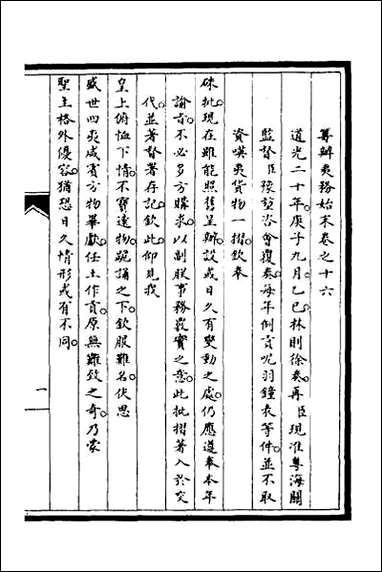 籌辦夷務始末卷之十六
道光二十年庚子九月乙巳林則徐奏再臣現准粵海關
監督臣豫堃咨會覆奏每年例貢呢羽鐘表等件並不取
資嘆夷貨物一摺欽奉
硃批現在雖能照舊呈辦設或日久有變動之處仍應遵奉本年
諭旨不必多方購求以副朕事務嚴實之意此批摺著入於交
代並著督署存記欽此仰見我
皇上俯恤下情不寶遠物跪誦之下欽服難名伏思
盛世四夷咸賓方物畢獻任土作貢原無難致之奇乃蒙
聖主格外優容猶恐日久情形或有不同
一